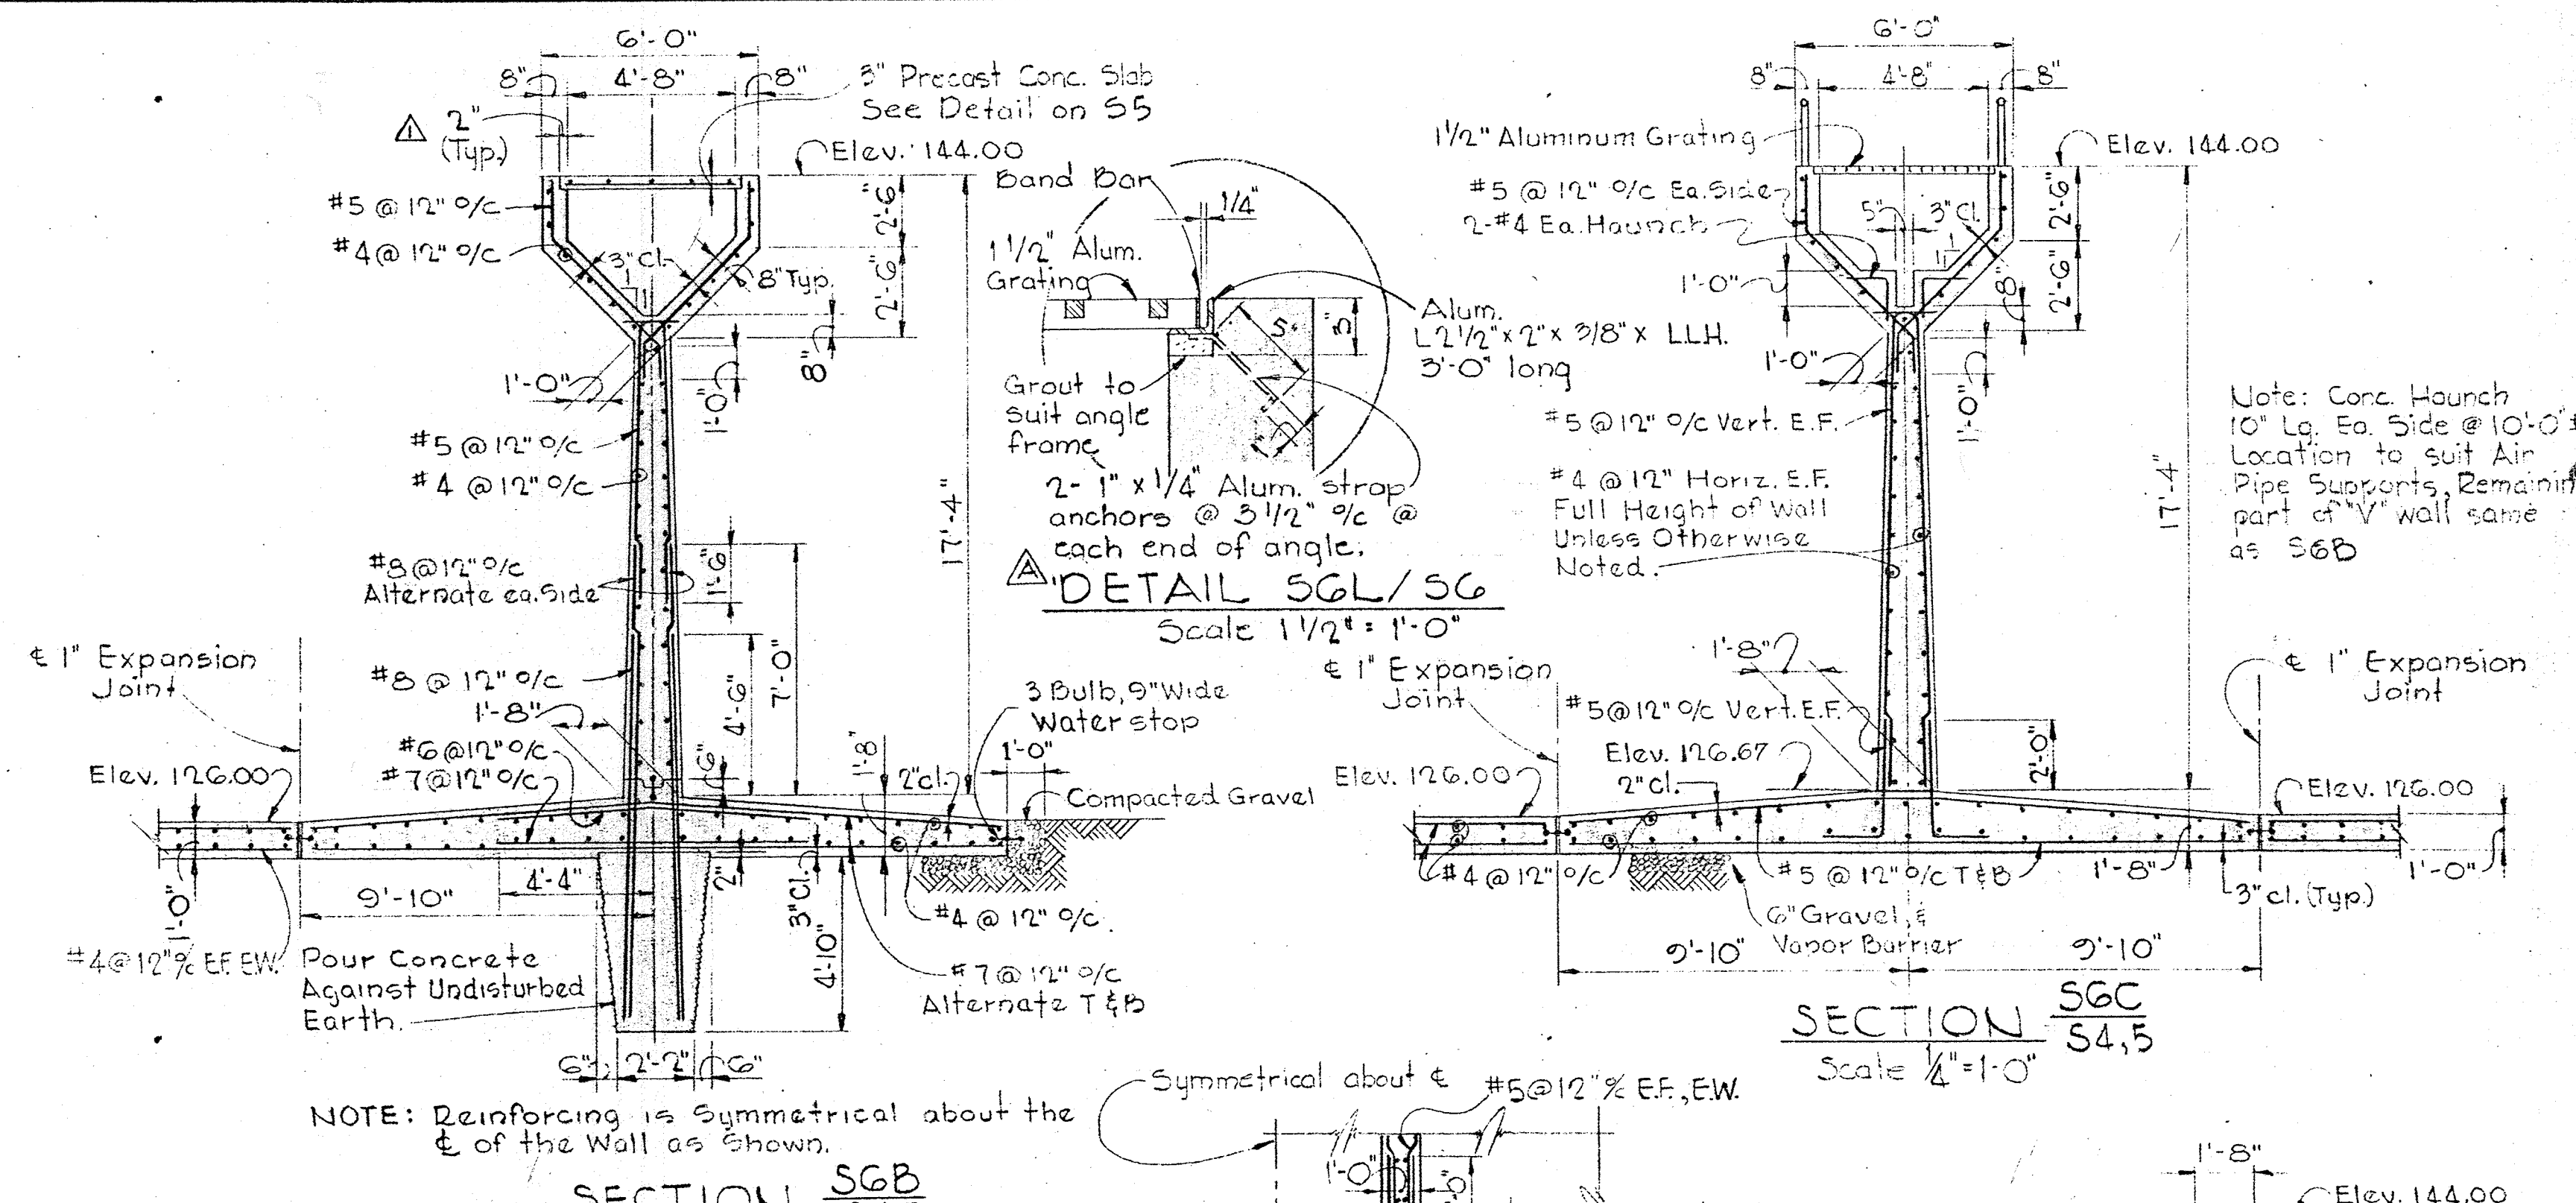 6'-0"
8" 4'-8" 8"
2"
(Typ.)
3" Precast Conc. Slab
See Detail on S5
Elev. 144.00
#5 @ 12" o/c
#4 @ 12" o/c
3" Cl.
1
1
8" Typ.
2'-6"
2'-6"
8"
1'-0"
1'-0"
#5 @ 12" o/c
#4 @ 12" o/c
17'-4"
#8 @ 12" o/c
Alternate ea. Side
1'-6"
7'-0"
4'-6"
₵ 1" Expansion
Joint
#8 @ 12" o/c
1'-8"
#6 @ 12" o/c
#7 @ 12" o/c
Elev. 126.00
6"
1'-8"
2" cl.
3 Bulb, 9" Wide
Water stop
1'-0"
Compacted Gravel
1'-0"
9'-10"
4'-4"
2"
3" Cl.
4'-10"
#4 @ 12" o/c
#4 @ 12" o/c E.F. E.W.
Pour Concrete
Against Undisturbed
Earth.
#7 @ 12" o/c
Alternate T & B
6" 2'-2" 6"
NOTE: Reinforcing is Symmetrical about the
₵ of the Wall as Shown.
SECTION S6B
Band Bar
1/4"
1 1/2" Alum.
Grating
5"
3"
Alum.
L 2 1/2" x 2" x 3/8" x LLH.
3'-0" long
Grout to
suit angle
frame
1"
2- 1" x 1/4" Alum. strap
anchors @ 3 1/2" o/c @
each end of angle.
A
DETAIL S6L/S6
Scale 1 1/2" = 1'-0"
6'-0"
8" 4'-8" 8"
1 1/2" Aluminum Grating
Elev. 144.00
#5 @ 12" o/c Ea. Side
2-#4 Ea. Haunch
5" 3" Cl.
1
1
1'-0"
8"
2'-6"
2'-6"
1'-0"
1'-0"
#5 @ 12" o/c Vert. E.F.
#4 @ 12" Horiz. E.F.
Full Height of Wall
Unless Otherwise
Noted.
17'-4"
Note: Conc. Haunch
10" Lg. Ea. Side @ 10'-0"±
Location to suit Air
Pipe Supports, Remainin
part of "V" wall same
as S6B
1'-8"
₵ 1" Expansion
Joint
₵ 1" Expansion
Joint
#5 @ 12" o/c Vert. E.F.
Elev. 126.67
2'-0"
Elev. 126.00
2" Cl.
Elev. 126.00
#4 @ 12" o/c
#5 @ 12" o/c T & B
1'-8"
3" cl. (Typ.)
1'-0"
6" Gravel, &
Vapor Barrier
9'-10" 9'-10"
SECTION S6C
S4,5
Scale 1/4"=1'-0"
Symmetrical about ₵
#5 @ 12" o/c E.F., E.W.
1'-0"
1'-8"
Elev. 144.00